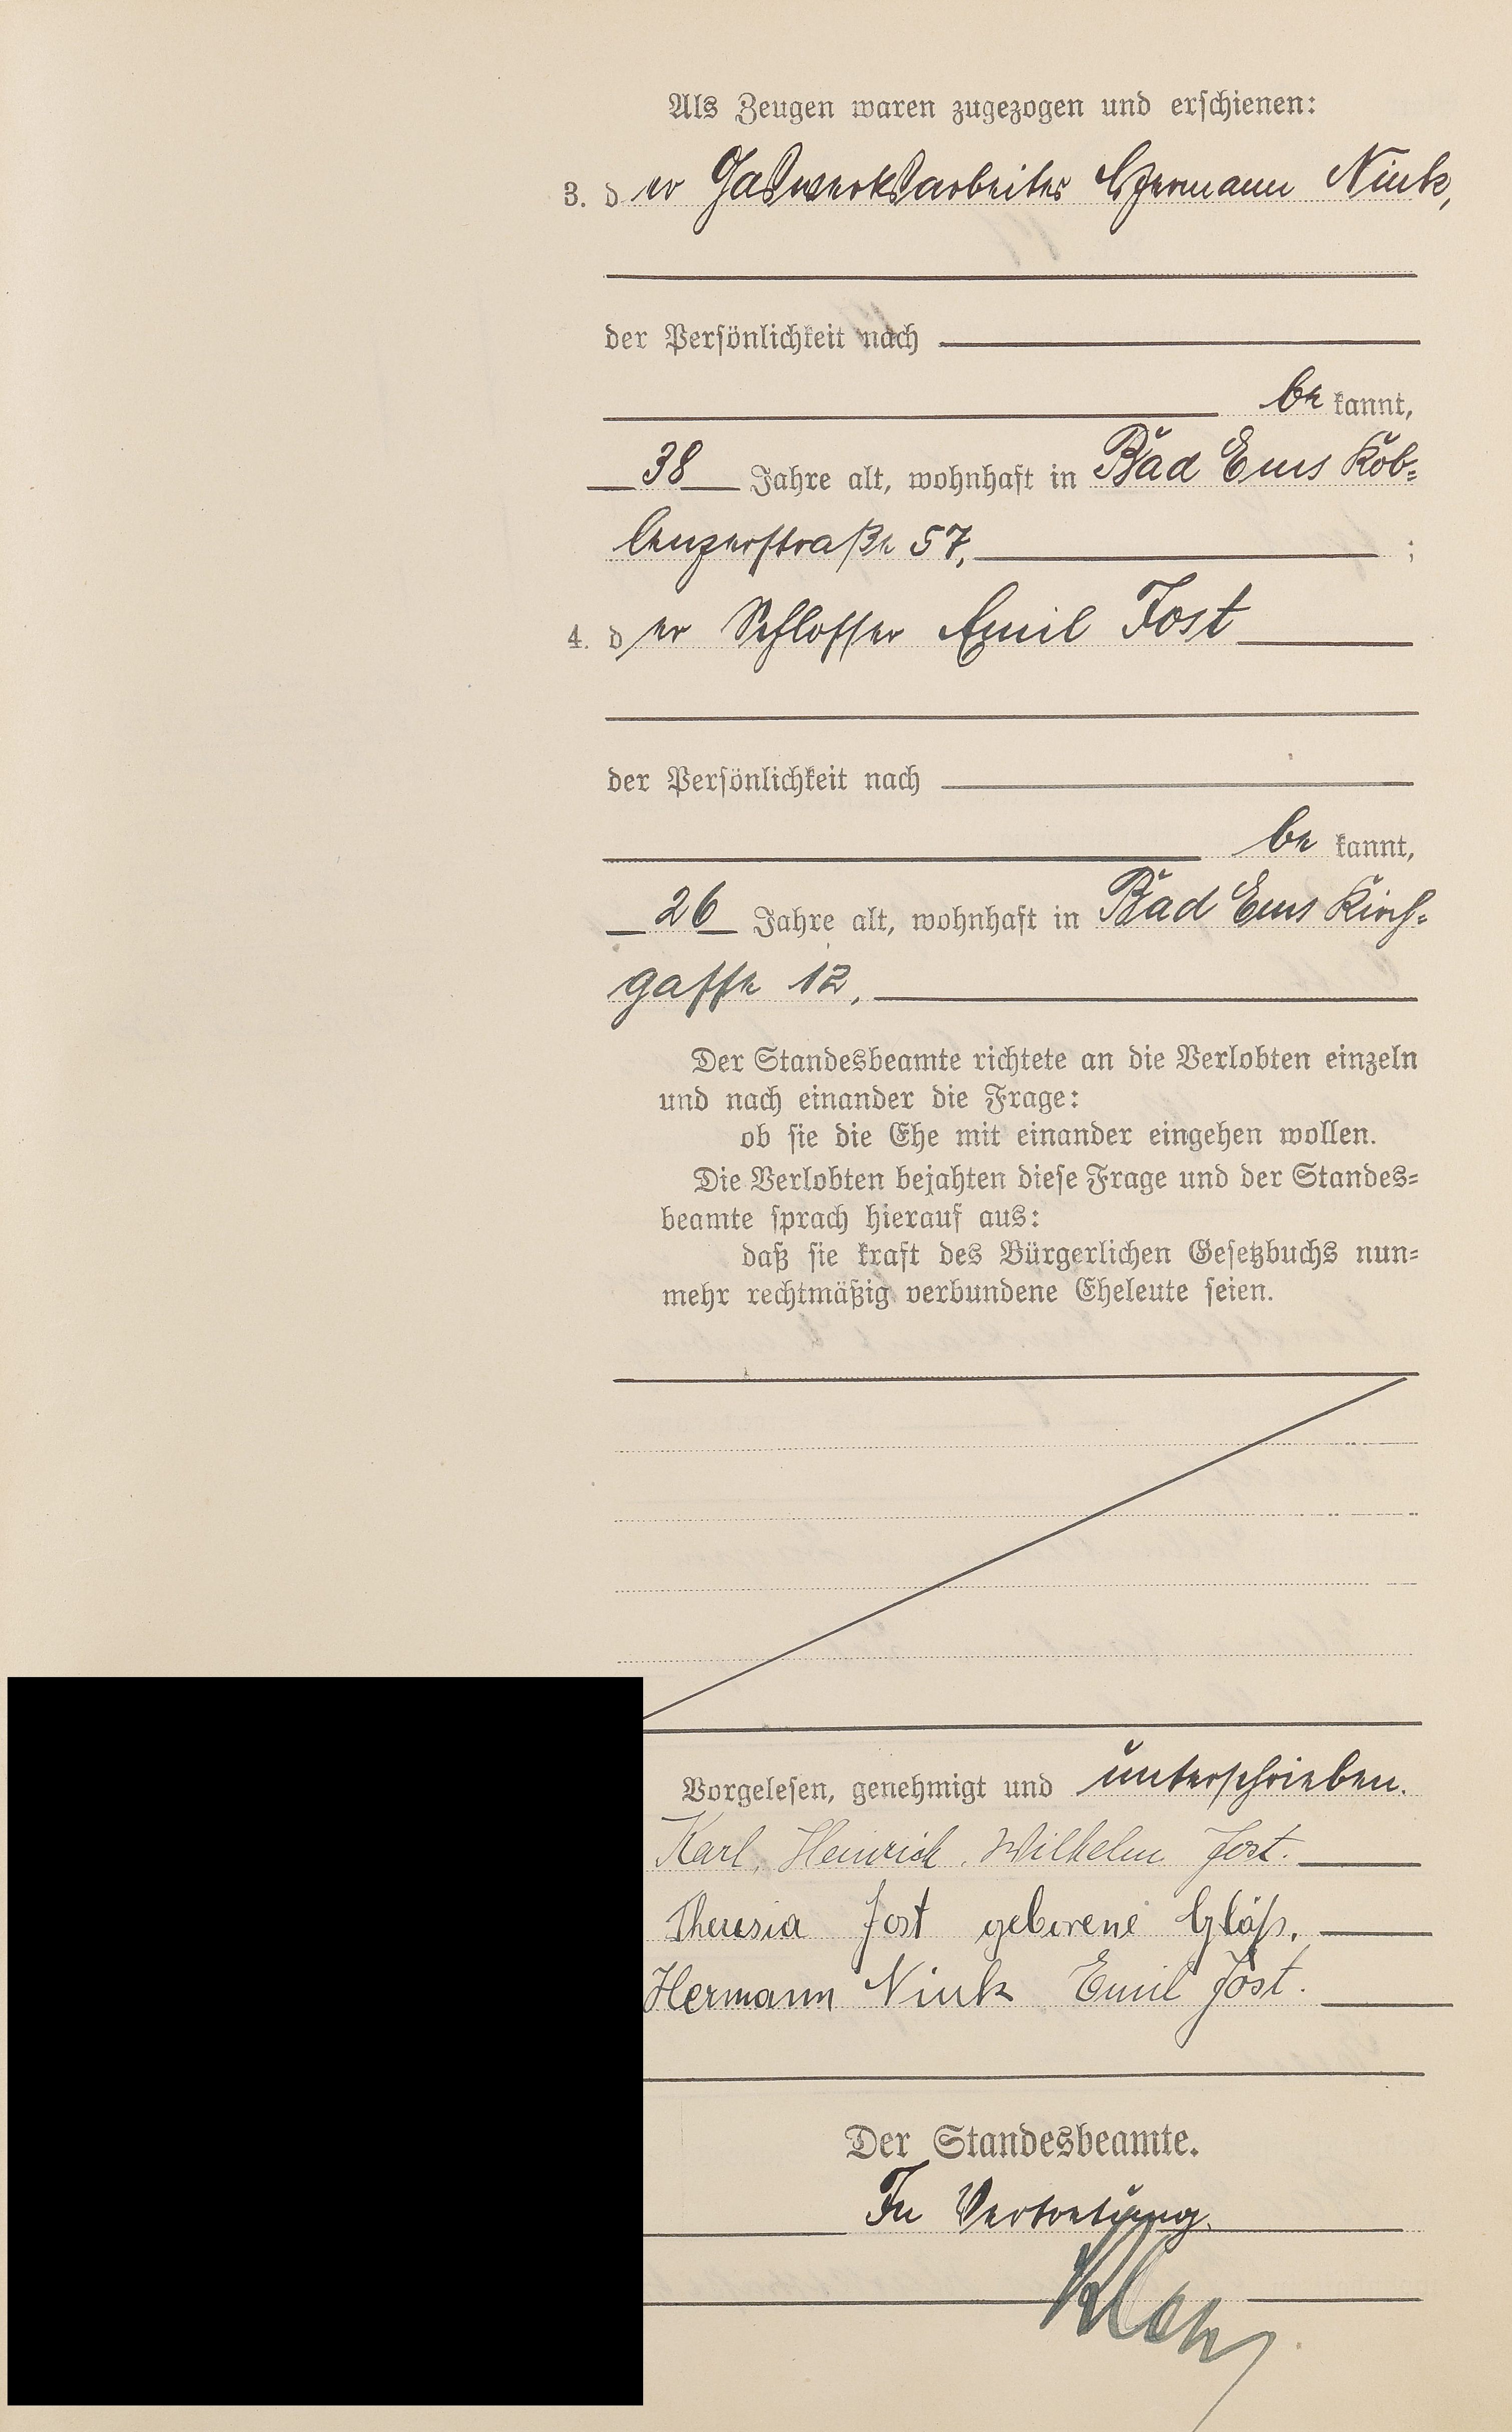 Als Zeugen waren zugezogen und erschienen:
3. der Gaswerksarbeiter Hermann Nink,
der Persönlichkeit nach
be kannt,
38 Jahre alt, wohnhaft in Bad Ems Kob=
lenzerstraße 57, ;
4. der Schlosser Emil Jost
der Persönlichkeit nach
be kannt,
26 Jahre alt, wohnhaft in Bad Ems Kirch=
gasse 12,
Der Standesbeamte richtete an die Verlobten einzeln
und nach einander die Frage:
ob sie die Ehe mit einander eingehen wollen.
Die Verlobten bejahten diese Frage und der Standes=
beamte sprach hierauf aus:
daß sie kraft des Bürgerlichen Gesetzbuchs nun=
mehr rechtmäßig verbundene Eheleute seien.
Vorgelesen, genehmigt und unterschrieben.
Karl, Heinrich, Wilhelm Jost.
Theresia Jost geborene Gläß.
Hermann Nink Emil Jost.
Der Standesbeamte.
In Vertretung.